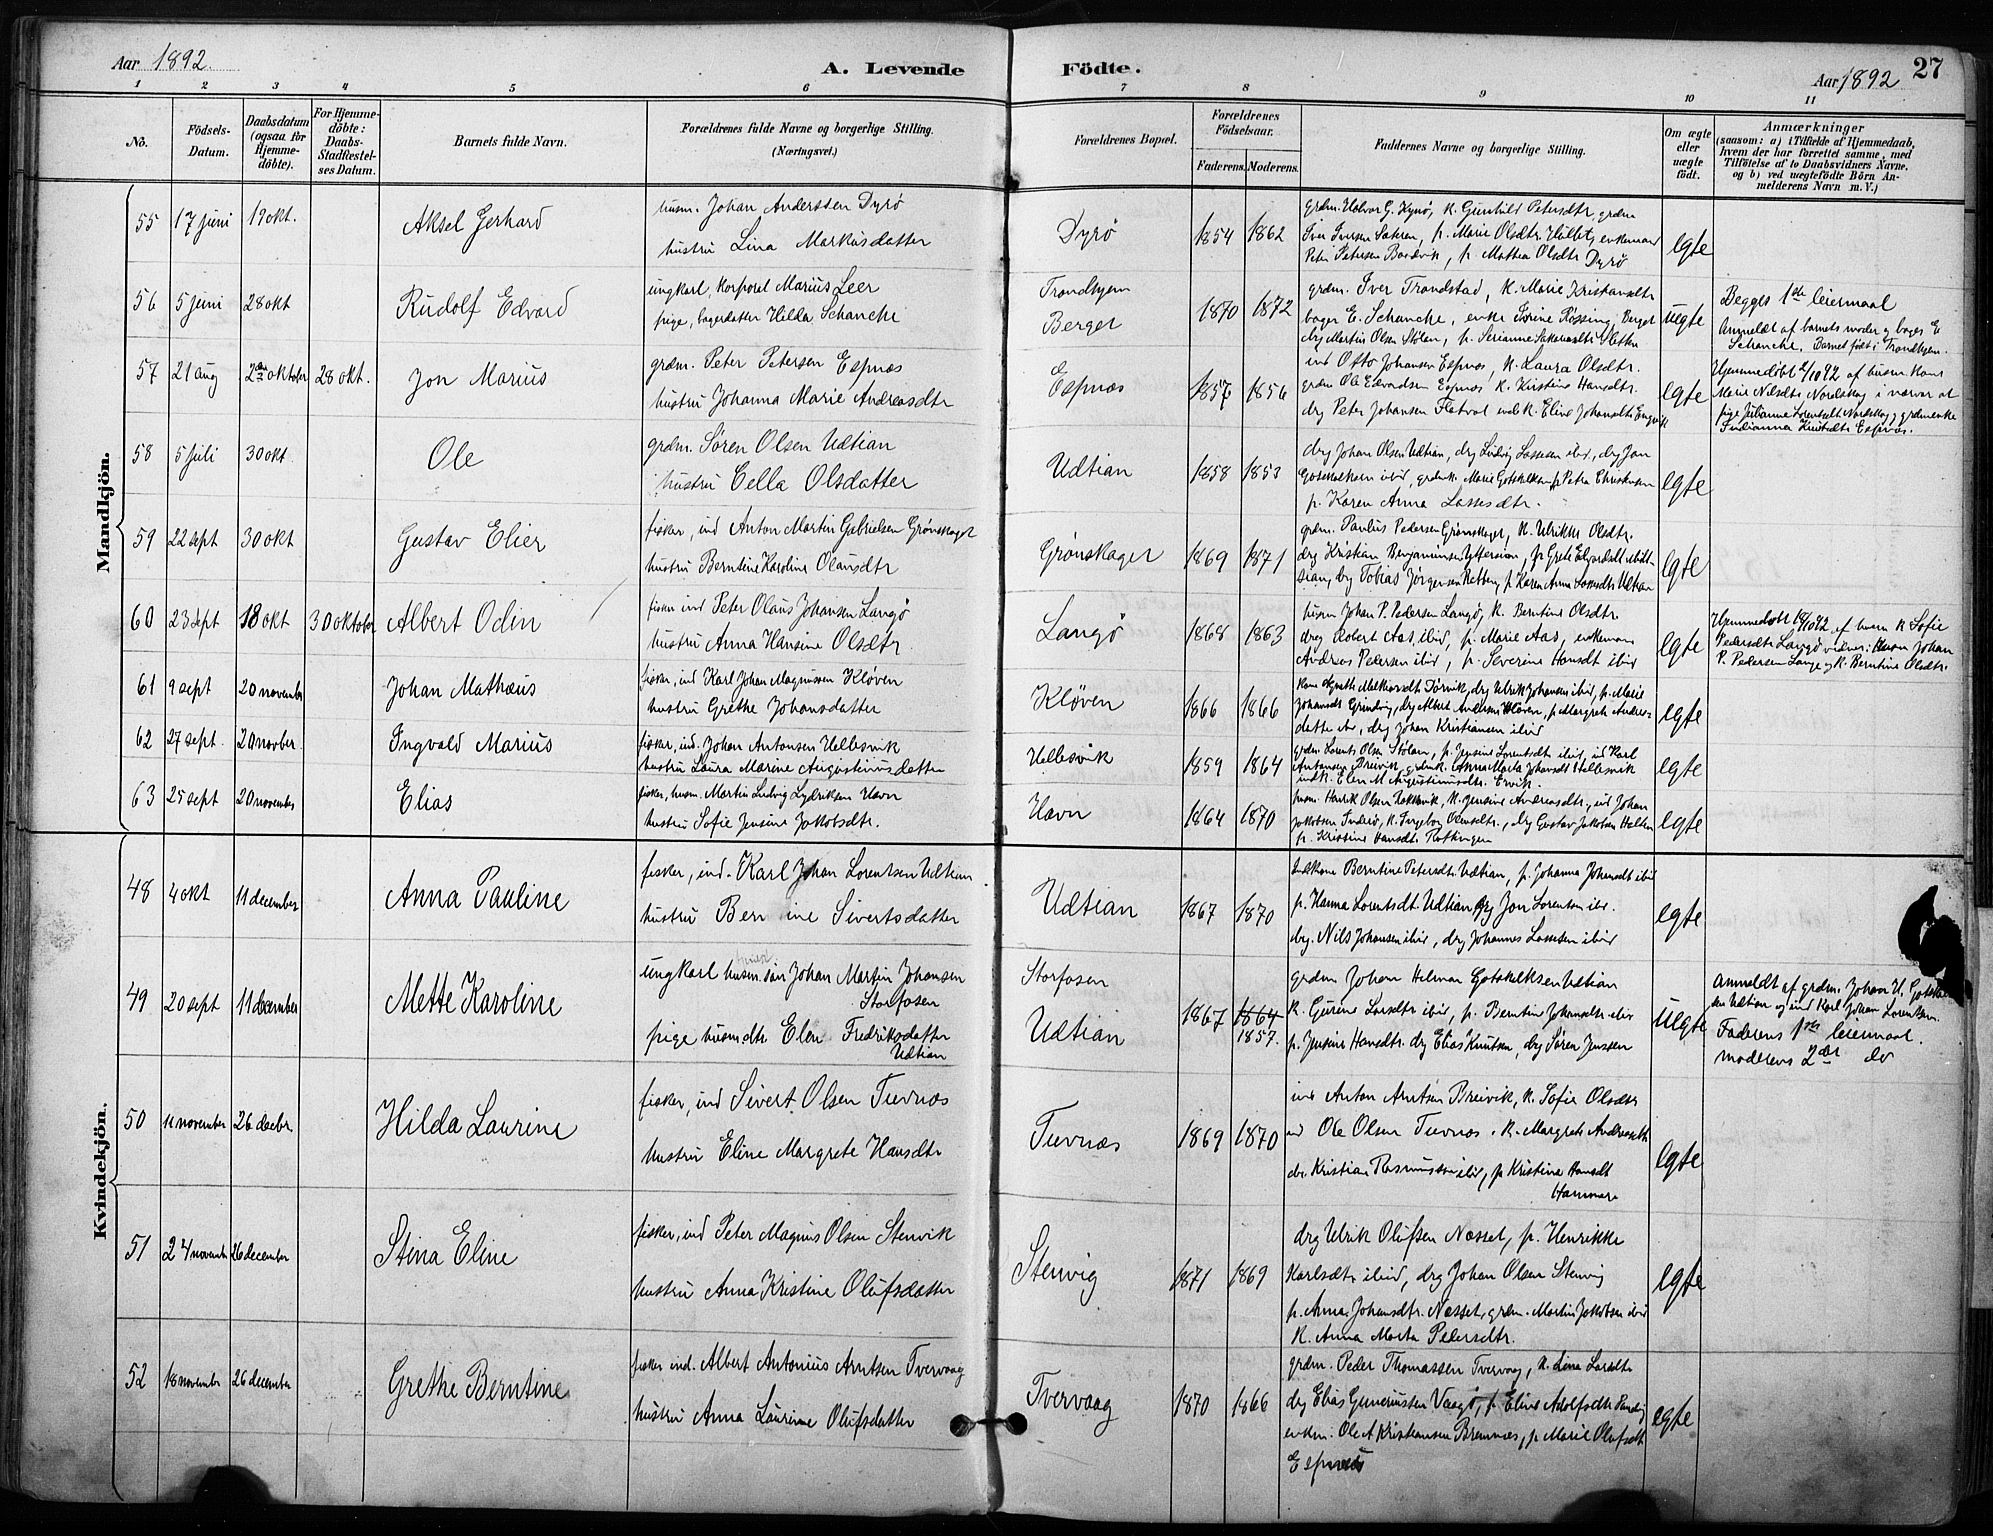 Aar 1892.
A. Levende Födte.
Aar 1892
27
1 2 3 4 5 6 7 8 9 10 11
No.
Födsels-Datum.
Daabsdatum (ogsaa for Hjemmedöbte).
For Hjemmedöbte: Daabs-Stadfæstelses Datum.
Barnets fulde Navn.
Forældrenes fulde Navne og borgerlige Stilling.
(Næringsvei.)
Forældrenes Bopæl.
Forældrenes Födselsaar.
Faderens. Moderens.
Faddernes Navne og borgerlige Stilling.
Om ægte eller uægte födt.
Anmærkninger
(saasom: a) i Tilfælde af Hjemmedaab, hvem der har forrettet samme, med Tilföielse af to Daabsvidners Navne. og b) ved uægtefödte Börn Anmelderens Navn m. V.)
Mandkjön.
55 17 juni 19 okt. Aksel Gerhard
husm. Johan Anderssen Dyrø
hustru Lina Markusdatter
Dyrø 1854 1862
Peter Petersen, p. Mathea Olsdtr Dyrø
egte
56 5 juni 28 okt Rudolf Edvard
ungkarl, korporal Marius Leer
pige, bagerdatter Hilda Schanche
Trondhjem
Berget
1870 1872
grdm. Iver Trondstad, k. Marie Kristiansdtr
bager E. Schanche, enke Berget
uegte
Begges 1ste leiermaal
Anmeldt af barnets moder og bager E
Schanche. Barnet født i Trondhjem.
57 21 aug 28 oktober 28 okt. Jon Marius
grdm. Peter Petersen Espnæs
hustru Johanna Marie Andreasdtr
Espnæs 1857 1856
ind Otto Johansen Espnæs, k. Laura Olsdtr.
grdm Ole Edvardsen Espnæs k. Kirstine Hansdtr.
drg Peter Johansen
egte
Hjemmedøbt af husm. kone
Marie Nilsdtr Nordskag i nærvær af
pige Julianne Lorentsdtr Nordskag, grdm enke
Espnæs.
58 5 juli 30 okt. Ole
grdm. Søren Olsen Udtian
hustru Cella Olsdatter
Udtian 1858 1853
drg Johan Olsen Udtian, drg Ludvig Lassesen ibid, drg Jon
p. Karen Anna Lassesdtr.
egte
59 22 sept 30 okt Gustav Elier
fisker, ind Anton Martin Gabrielsen Grønskaget
hustru Berntine Karoline Olausdtr
Grønskaget 1869 1871
grdm. Paulus Pedersen Grønskaget, k. Ulrikke Olsdtr.
drg Kristian Benjaminsen
p. Karen Anna Lassesdtr Udtian
egte
60 23 sept 18 okt 30 oktober Albert Odin
fisker ind Peter Olaus Johansen Langø
hustru Anna Hansine Olsdtr.
Langø 1868 1863
husm Johan P. Pedersen Langø, k. Berntine Olsdtr.
drg Robert Aas ibid, p. Marie Aas, enkemand
Andreas Pedersen ibid, p. Severine Hansdt ibid
egte
Hjemmedøbt 18/10 92 af husm k Sofie
Pedersdtr Langø vidner: husm Johan
P. Pedersen Langø og k. Berntine Olsdtr.
61 9 sept 20 november Johan Mathæus
fisker, ind Karl Johan Magnussen Kløven
hustru Grethe Johansdatter
Kløven 1866 1866
drg Ulrik Johansen ibid, p. Marie
Johansdt, drg Albert Andersen Kløven, p. Margrete
drg Johan Kristiansen ibid
egte
62 27 sept. 20 novber. Ingvald Marius
fisker, ind. Johan Antonsen Ulbesvik
hustru Laura Marine Augustinusdatter
1859 1864
grdm. Lorents Olsen Stølan, p. Jensine Lorentsdt ibid, ind Karl
Antonsen Breivik
indk. Elen M Augustinusdtr. Ervik.
egte
63 25 sept 20 november Elias
fisker, husm. Martin Ludvig Lydriksen Havn
hustru Sofie Jensine Jakobsdtr.
Havn 1864 1870
husm. Henrik Olsen, k. Jensine Andreasdtr., ind Johan
Jakobsen, drg Gustav Jakobsen Holten
p. Kristine Hansdtr.
egte
Kvindekjön.
48 4 okt 11 december Anna Pauline
fisker, ind. Karl Johan Lorentsen Udtian
hustru Ber ine Sivertsdatter
Udtian 1867 1870
Indk kone Berntine Petersdtr Udtian, p. Johanna Johansdt ibid
p. Hanna Lorentsdt Udtian drg Jon Lorentsen ibr.
drg. Nils Johansen ibid, drg Johannes Lassesen ibid
egte
49 20 sept 11 december Mette Karoline
ungkarl husm. søn Johan Martin Johansen
Storfosen
pige husmdtr. Elen Fredriksdatter
Udtian
Storfosen
Udtian
1867 1864
1857.
grdm Johan Helmer Gotskelksen Udtian
k. Gurine Larsdtr ibid, p. Berntine Johansdtr ibid
p. Jensine Hansdtr. drg Elias Knutsen, drg Søren Jenssen
uegte
Anmeldt af grdm. Johan H. Gotskelk
sen Udtian og ind Karl Johan Lorentsen.
Faderens 1ste leiermaal.
moderens 2det do
50 11 november 26 decbr. Hilda Laurine
fisker, ind Sivert Olsen Tuvnæs
hustru Eline Margrete Hansdtr
Tuvnæs 1869 1870
ind Anton Arntsen Breivik, k. Sofie Olsdtr
ind Ole Olsen Tuvnæs. k. Margrete Andreasdtr
dr. Kristian Rasmussen ibid, p Kristine Hansdt
Hammer
egte
51 24 november 26 december Stina Eline
fisker, ind Peter Magnus Olsen Stenvik
hustru Anna Kristine Olufsdatter
Stenvig 1871 1869
drg Ulrik Olufsen Nesset, p. Henrikke
Karlsdtr ibid, drg Johan Olsen Stenvig
p. Anna Johansdtr. Nesset, grdm. Martin Jakobsen ibid
k. Anna Marta Pedersdtr.
egte
52 18 november 26 december Grethe Berntine
fisker ind. Albert Antonius Arntsen Tvervaag
hustru Anna Laurine Olufsdatter
Tvervaag 1870 1866
grdm. Peder Thomassen Tvervaag, k. Lina Larsdtr
drg Elias Gunerussen Vaagø, p. Eline Adolfsdtr
enkm. Ole A Kristiansen Bremnæs, p. Marie Olufsdt
Espnæs
egte